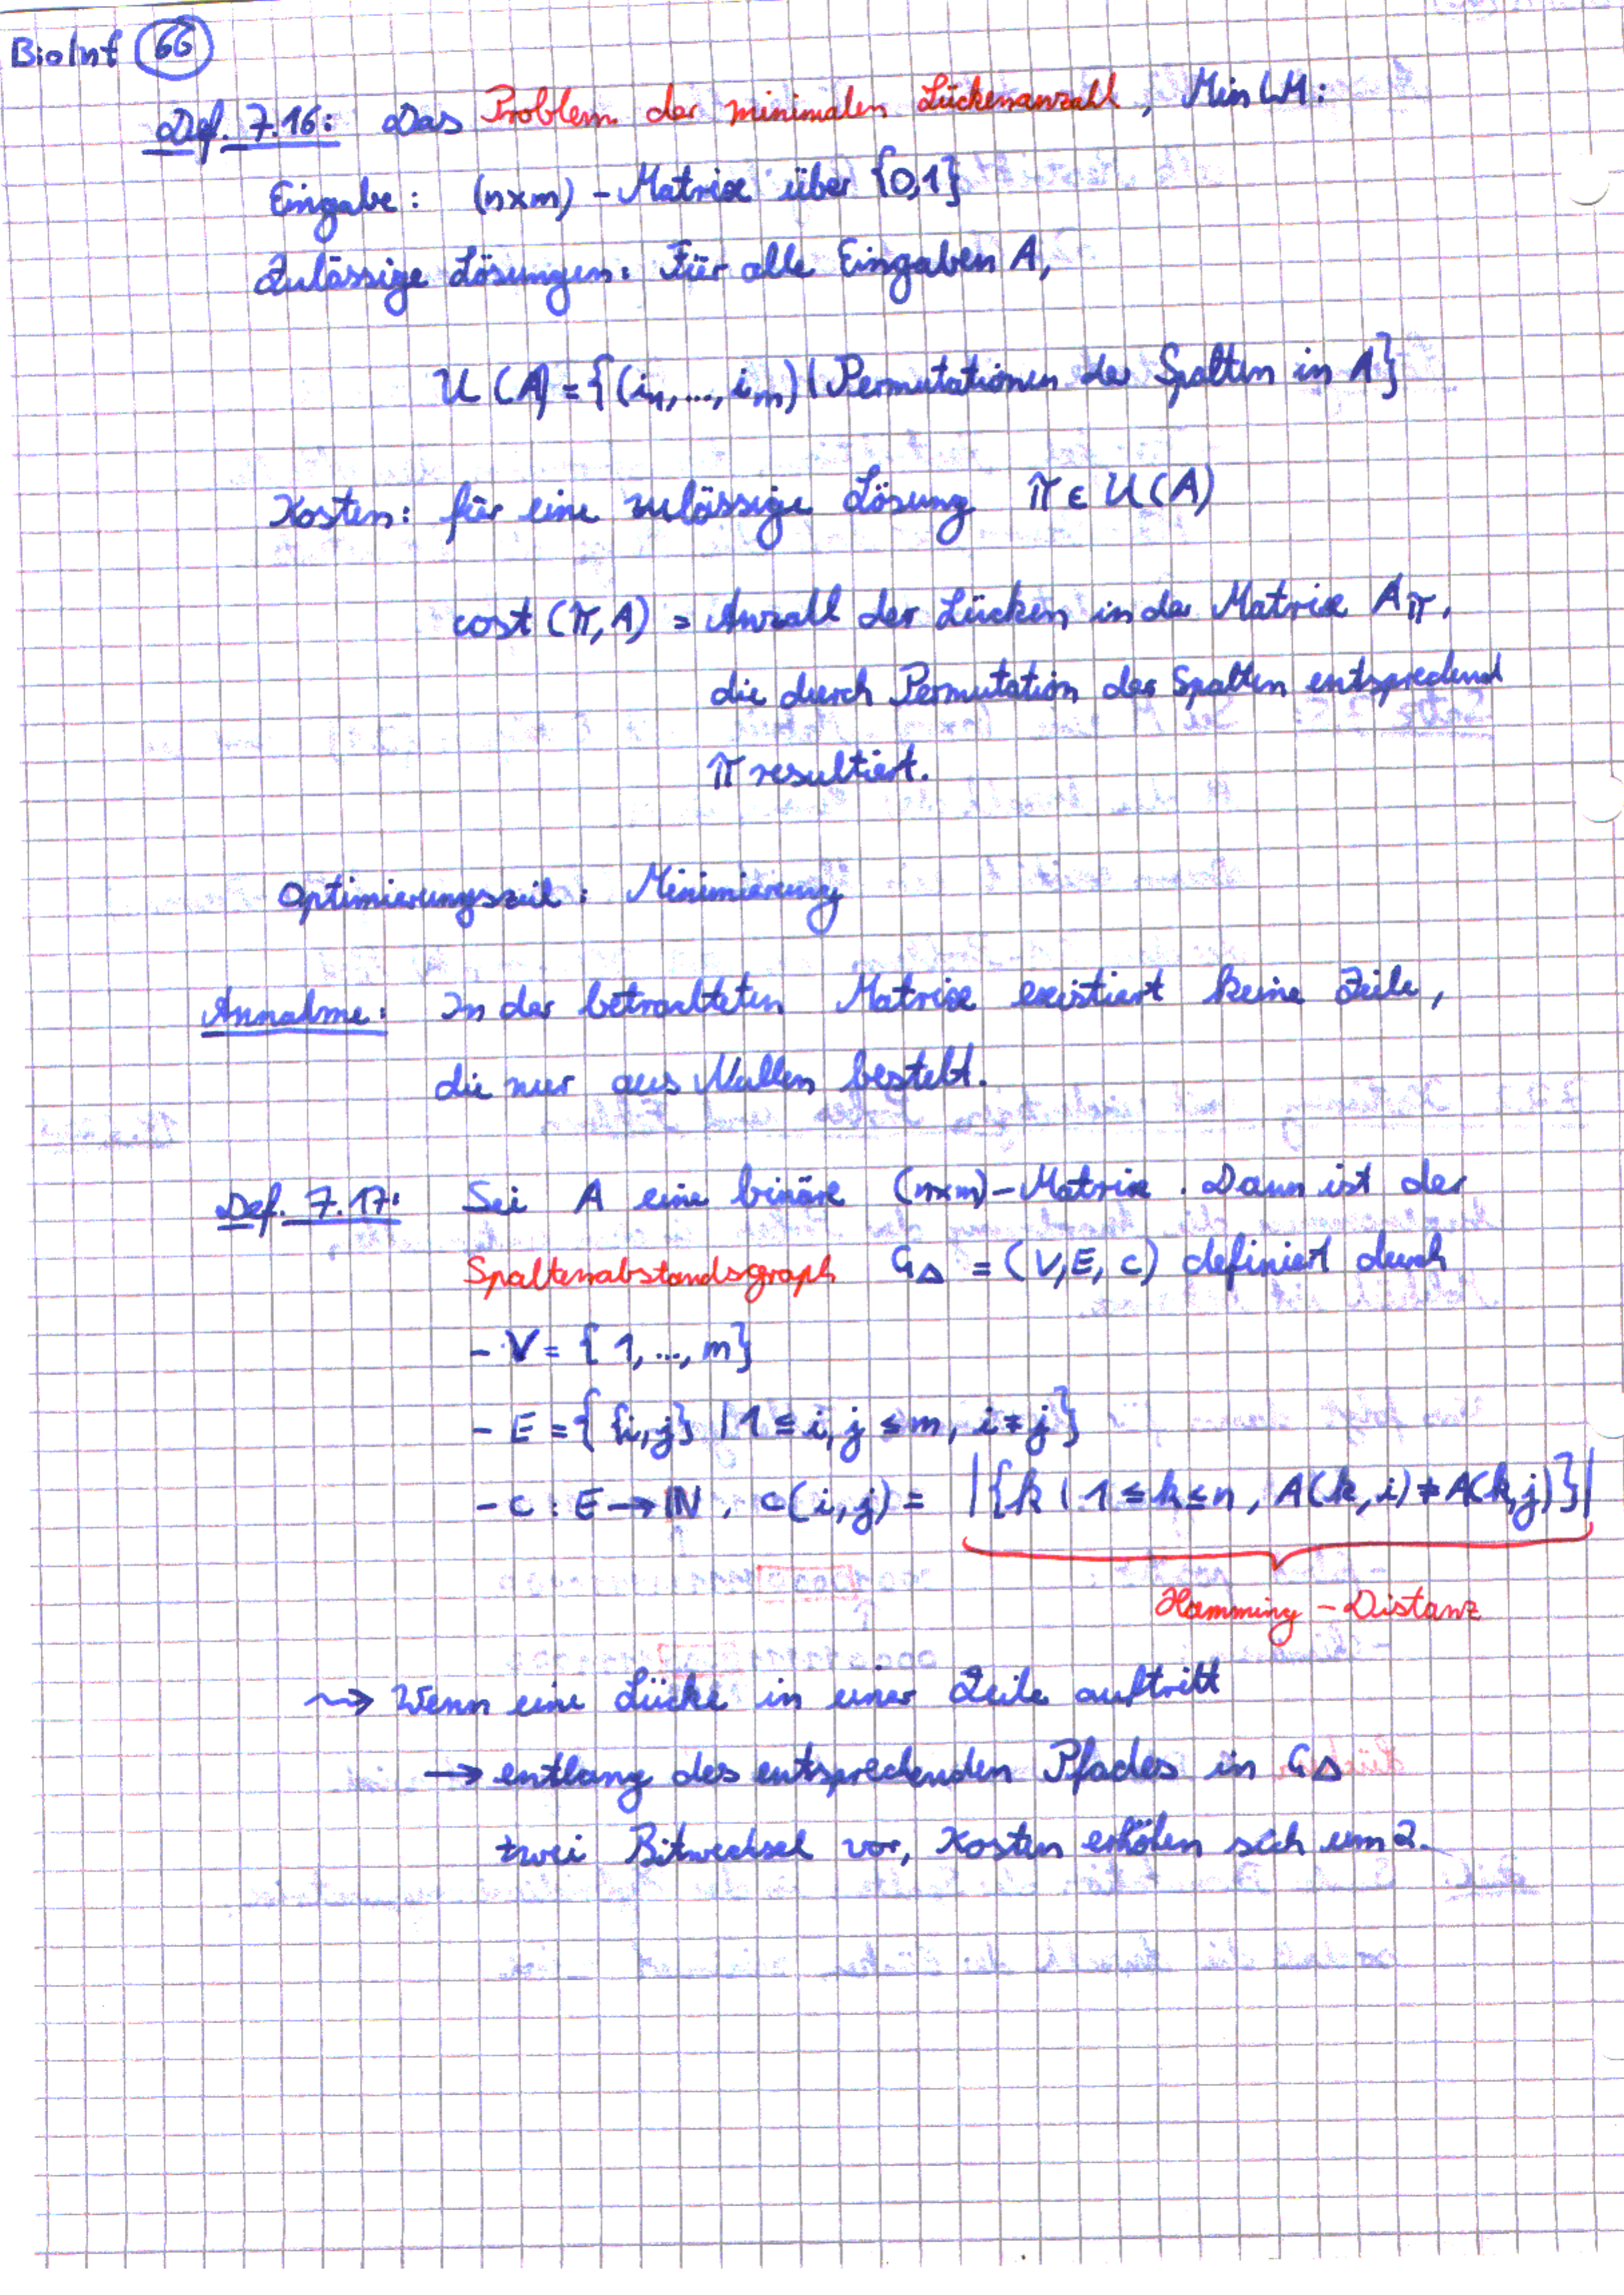 BioInf 66
Def. 7.16: Das Problem der minimalen Lückenanzahl, MinLM:
Eingabe: (n×m) - Matrix über {0,1}
Zulässige Lösungen: Für alle Eingaben A,
U(A) = {(i₁, ..., iₘ) | Permutationen der Spalten in A}
Kosten: für eine zulässige Lösung π ∈ U(A)
cost(π, A) = Anzahl der Lücken in der Matrix Aπ,
die durch Permutation der Spalten entsprechend
π resultiert.
Optimierungsziel: Minimierung
Annahme: In der betrachteten Matrix existiert keine Zeile,
die nur aus Nullen besteht.
Def. 7.17: Sei A eine binäre (n×m)-Matrix. Dann ist der
Spaltenabstandsgraph G△ = (V, E, c) definiert durch
- V = {1, ..., m}
- E = { {i,j} | 1 ≤ i, j ≤ m, i ≠ j}
- c : E → ℕ, c(i,j) = |{k | 1 ≤ k ≤ n, A(k,i) ≠ A(k,j)}|
Hamming - Distanz
⇝ Wenn eine Lücke in einer Zeile auftritt
→ entlang des entsprechenden Pfades in G△
zwei Bitwechsel vor, Kosten erhöhen sich um 2.